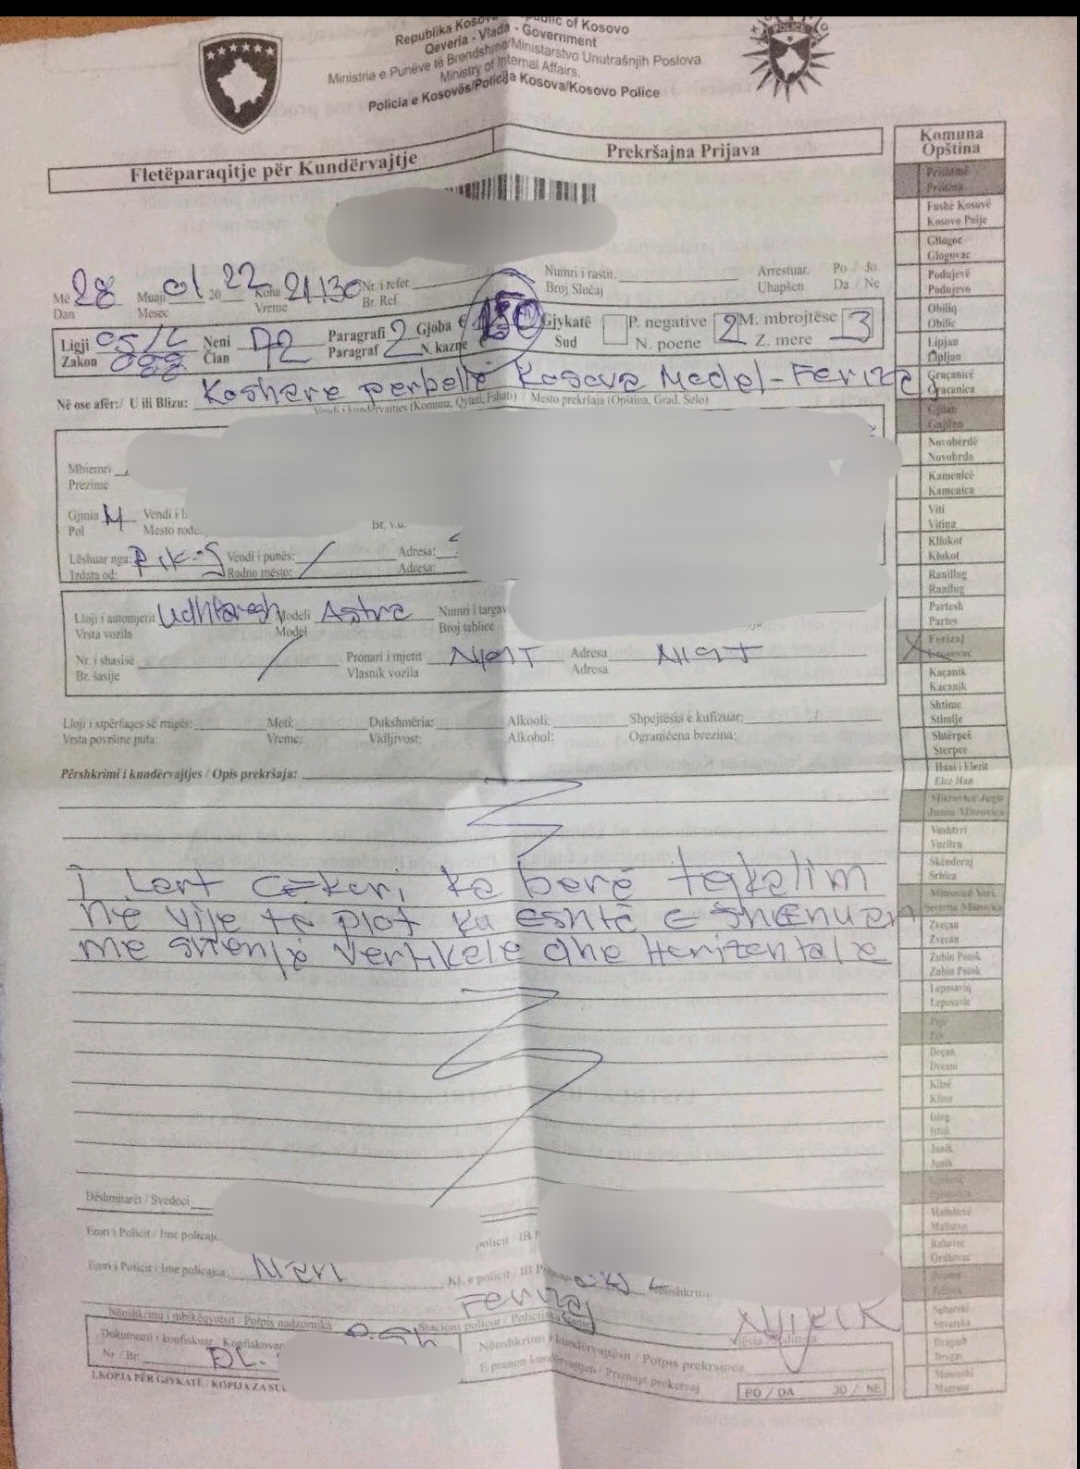 Republika Kosova Republic of Kosovo
Qeveria - Vlada - Government
Ministria e Punëve të Brendshme/Ministarstvo Unutrašnjih Poslova
Ministry of Internal Affairs
Policia e Kosovës/Policija Kosova/Kosovo Police
POLICE
Fletëparaqitje për Kundërvajtje Prekršajna Prijava
Më 28 Muaji 01 20 22 Koha 21:30 Nr. i refer. Numri i rastit Arrestuar. Po / Jo
Dan Mesec Vreme Br. Ref. Broj Slučaj Uhapšen Da / Ne
Ligji 05/L Neni 72 Paragrafi 2 Gjoba € 150 Gjykatë P. negative 2 M. mbrojtëse 3
Zakon 088 Član Paragraf N. kazne Sud N. poene Z. mere
Në ose afër:/ U ili Blizu: Koshare përballë Kosova Medel-Ferizaj
Vendi i kundërvajtjes (Komuna, Qyteti, Fshati) / Mesto prekršaja (Opština, Grad, Selo)
Mbiemri
Prezime
Gjinia M Vendi i
Pol Mesto rođe. Br. v.d.
Lëshuar nga: Vendi i punës: / Adresa:
Izdata od: Radno mesto: Adresa:
Lloji i automjetit Udhtaresh Modeli Astra Numri i targav
Vrsta vozila Model Broj tablice
Nr. i shasisë / Pronari i mjetit Njejt Adresa Njejt
Br. šasije Vlasnik vozila Adresa
Lloji i sipërfaqes së rrugës: Moti: Dukshmëria: Alkooli: Shpejtësia e kufizuar:
Vrsta površine puta: Vreme: Vidljivost: Alkohol: Ograničena brezina:
Përshkrimi i kundërvajtjes / Opis prekršaja:
I lart cekuri, ka berë tejkalim
në vije të plot ku eshtë e shënuar
me shenja vertikale dhe Horizontale
Dëshmitarët / Svedoci
Emri i Policit / Ime policajc policit / IB P
Emri i Policit / Ime policajca Kl. e policit / IB
Ferizaj
Nënshkrimi i mbikëqyrësit / Potpis nadzornika Stacioni policor / Policijska
Dokumenti i konfiskuar Konfiskovan Nënshkrimi i kundërvajtësit / Potpis prekršioca
Nr / Br DL. E pranon kundërvajtjen / Priznaje prekršaj PO / DA JO / NE
1.KOPJA PËR GJYKATË / KOPIJA ZA SU
Komuna
Opština
Prishtinë
Priština
Fushë Kosovë
Kosovo Polje
Gllogoc
Glogovac
Podujevë
Podujevo
Obiliq
Obilic
Lipjan
Lipljan
Graçanicë
Gracanica
Gjilan
Gnjilan
Novobërdë
Novobrdo
Kamenicë
Kamenica
Viti
Vitina
Kllokot
Klokot
Ranillug
Ranilug
Partesh
Partes
Ferizaj
Urosevac
Kaçanik
Kacanik
Shtime
Stimlje
Shtërpcë
Sterpce
Hani i Elezit
Elez Han
Mitrovicë Jugu
Juzna Mitrovica
Vushtrri
Vucitrn
Skënderaj
Srbica
Mitrovicë Veri.
Severna Mitrovica
Zveçan
Zvecan
Zubin Potok
Zubin Potok
Leposaviq
Leposavic
Pejë
Pec
Deçan
Decani
Klinë
Klina
Istog
Istok
Junik
Junik
Gjakovë
Malishevë
Malisevo
Rahovec
Orahovac
Suharekë
Suvareka
Dragash
Dragas
Mamushë
Mamusa